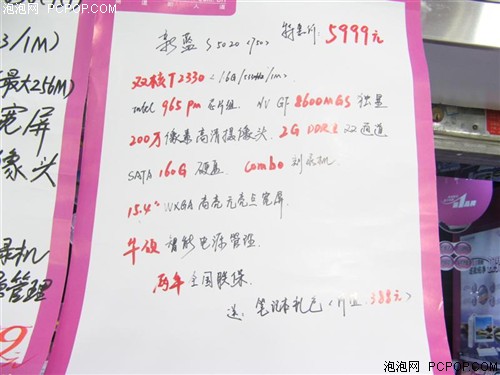 泡泡网 PCPOP.COM
新蓝 S5020
特惠价: 5999元
双核T2330 <1.6G/533MHz/1m>
Intel 965pm 芯片组. NV GF 8600MGS 独显
200万像素高清摄像头. 2G DDR2 双通道
SATA 160G 硬盘. combo 刻录机
15.4" WXGA 高亮无亮点宽屏
智能电源管理.
两年全国联保.
送: 笔记本礼包 <价值388元>
3/1M)
最大256M)
宽屏
像头
录机
管理
泡泡网 PCPOP.COM